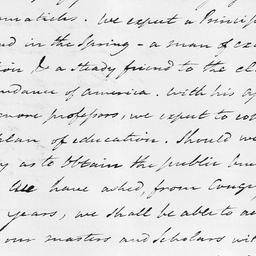 matics. We expect a Princip
d in the Spring - a man of ex
tion & a steady friend to the cl
endance of america. With his a
more professors, we expect to co
plan of education. Should we
y as to obtain the public
We have asked, from Cong
years, we shall be able to
our masters and scholars wit